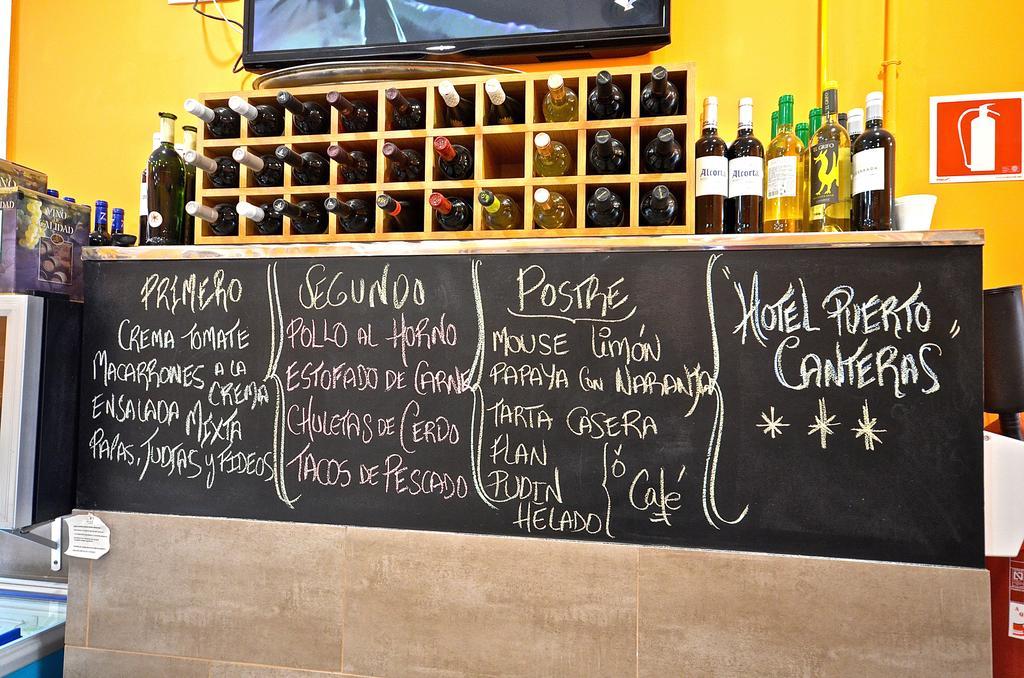 PRIMERO
CREMA TOMATE
MACARRONES A LA
CREMA
ENSALADA MIXTA
PAPAS, JUDIAS y FIDEOS
SEGUNDO
POLLO AL HORNO
ESTOFADO DE CARNE
CHULETAS DE CERDO
TACOS DE PESCADO
POSTRE
MOUSE limón
PAPAYA CON NARANJA
TARTA CASERA
FLAN
PUDIN
HELADO
ó
Café
"HOTEL PUERTO
CANTERAS"
Alcorta
Alcorta
EL GRIFO
VINO
CALIDAD